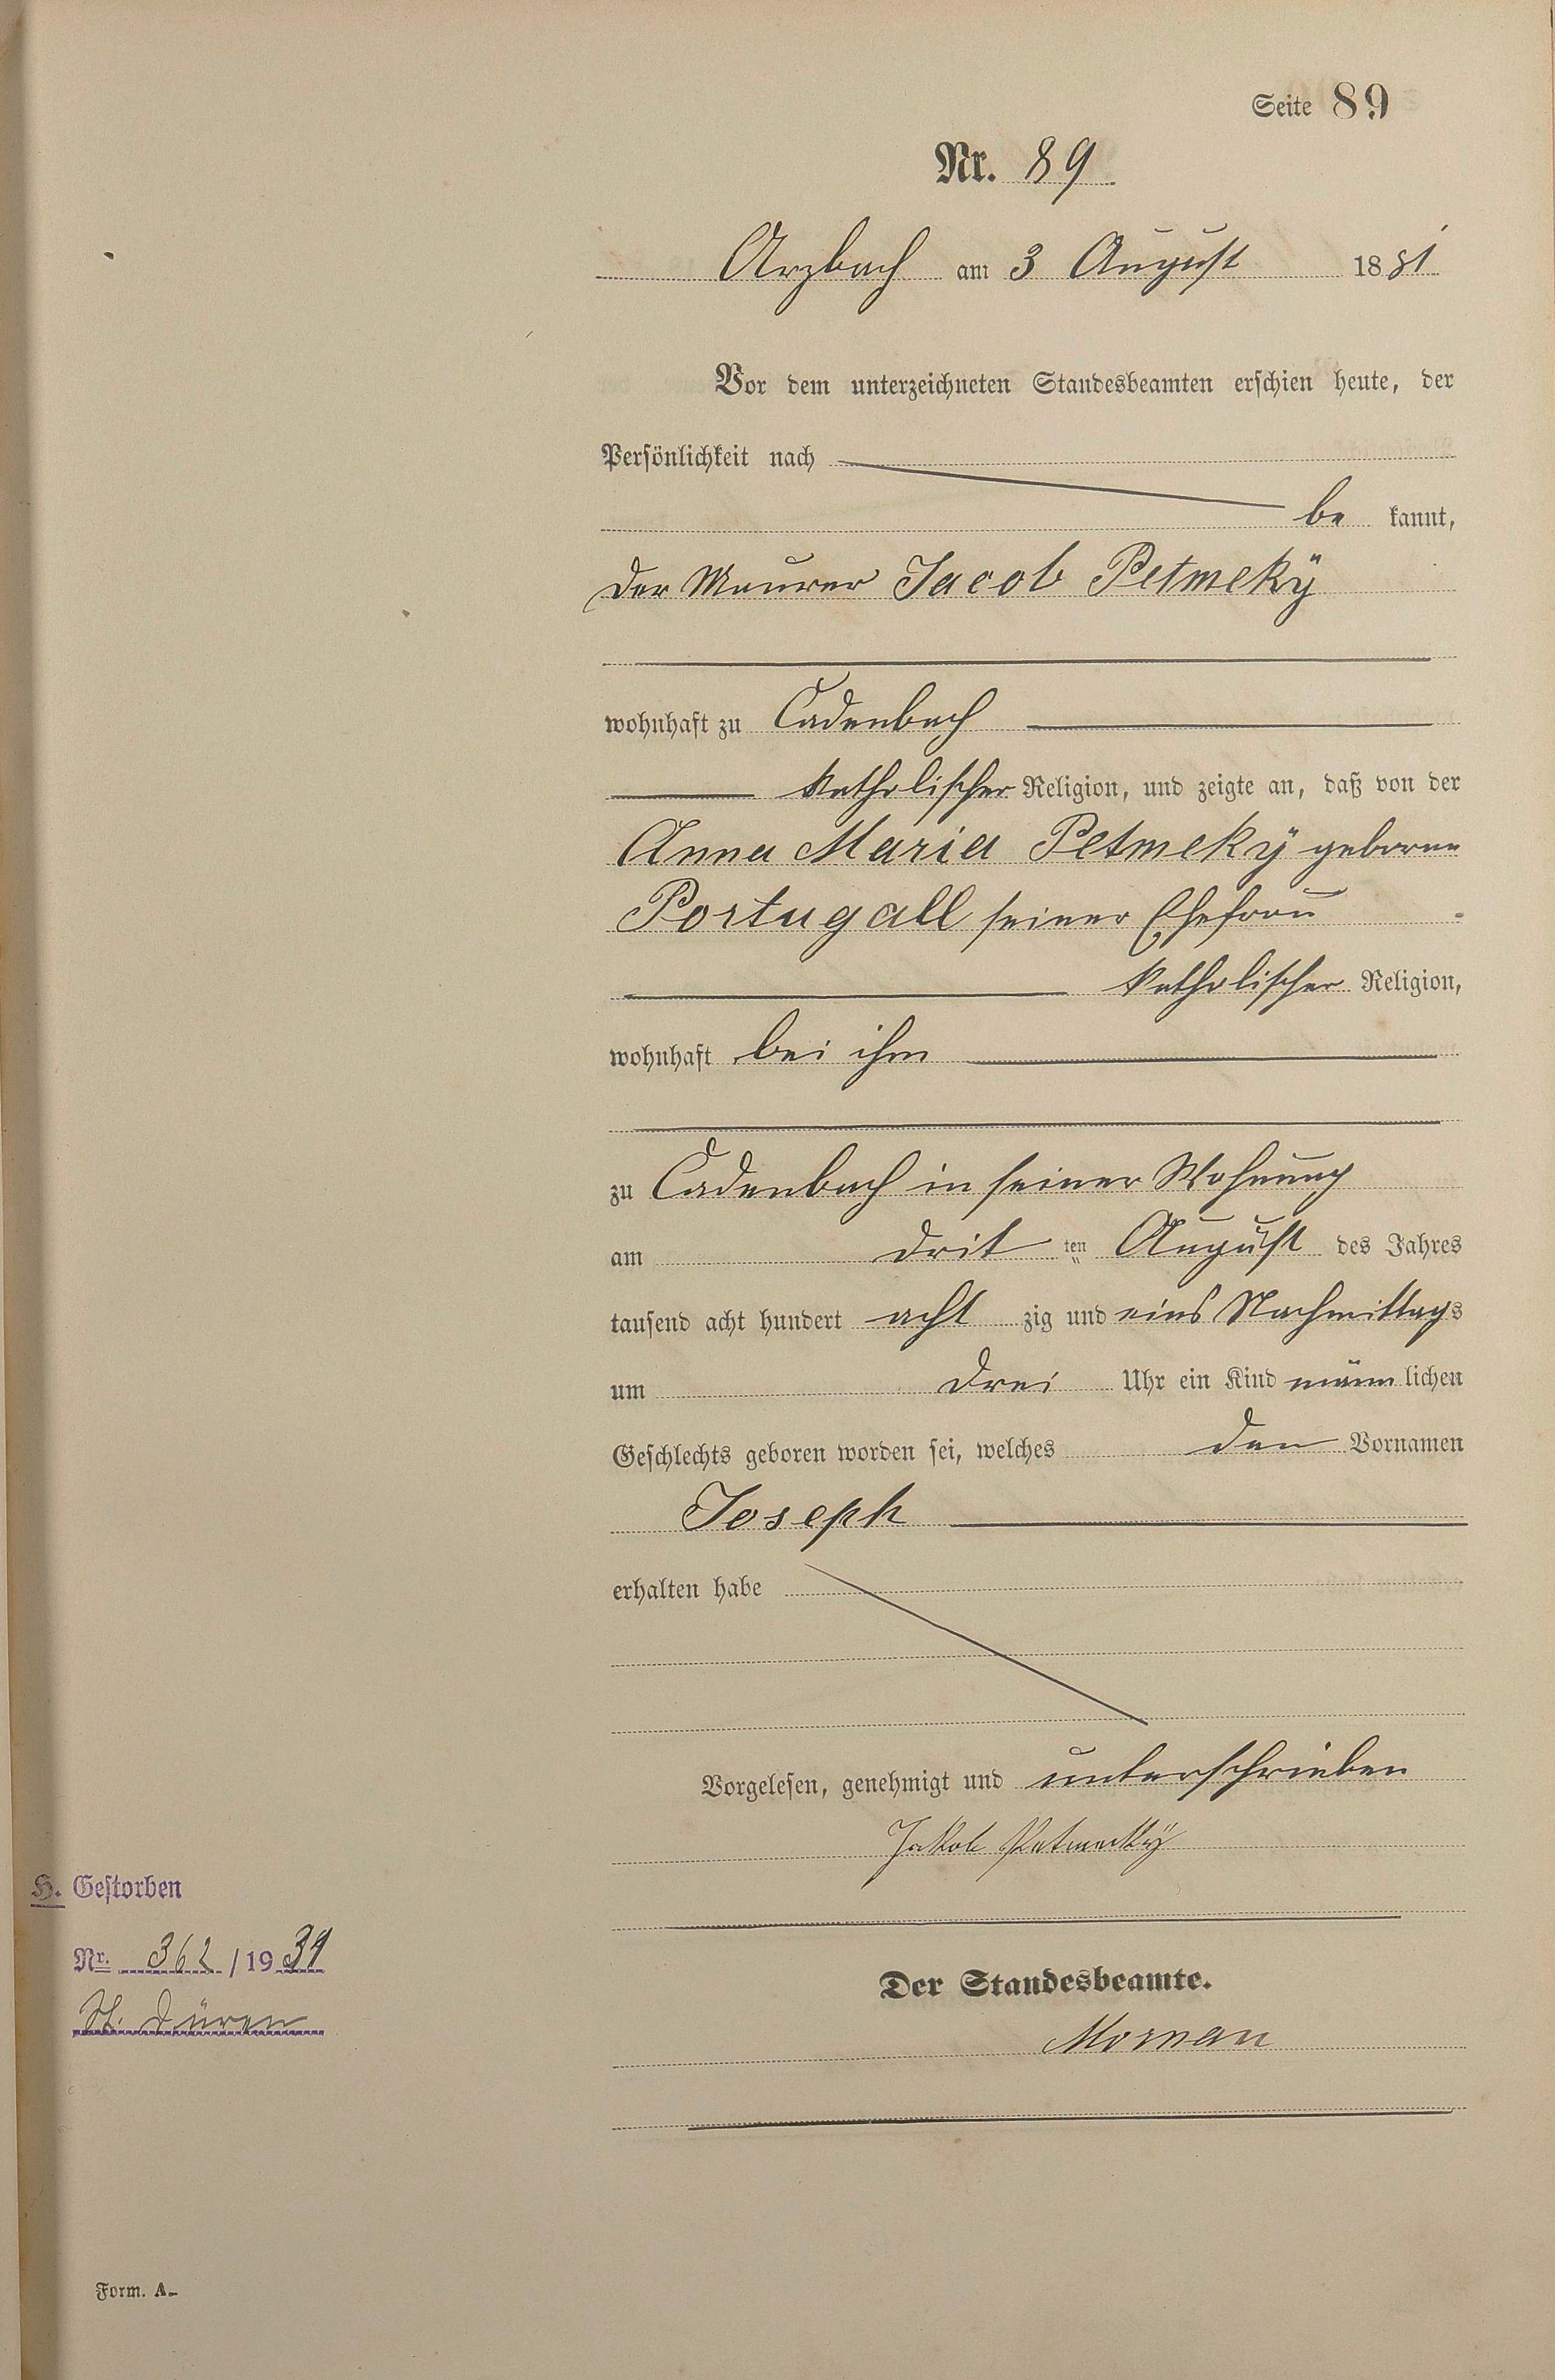 Seite 89
Nr. 89
Arzbach am 3 August 1881
Vor dem unterzeichneten Standesbeamten erschien heute, der
Persönlichkeit nach
be kannt,
der Maurer Jacob Petmeky
wohnhaft zu Cadenbach
katholischer Religion, und zeigte an, daß von der
Anna Maria Petmeky geborne
Portugall seiner Ehefrau
katholischer Religion,
wohnhaft bei ihm
zu Cadenbach in seiner Wohnung
am drit ten August des Jahres
tausend acht hundert acht zig und eins Nachmittags
um drei Uhr ein Kind männ lichen
Geschlechts geboren worden sei, welches den Vornamen
Joseph
erhalten habe
Vorgelesen, genehmigt und unterschrieben
Jakob Petmecky
H. Gestorben
Nr. 362 / 1939
St. Düren
Der Standesbeamte.
Form. A.